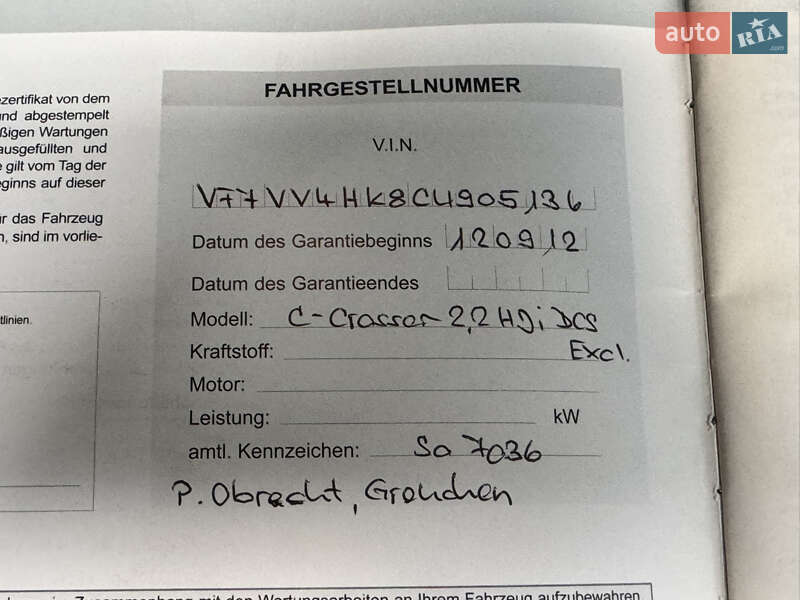 auto RIA .com
zertifikat von dem
und abgestempelt
ßigen Wartungen
ausgefüllten und
e gilt vom Tag der
eginns auf dieser
ür das Fahrzeug
n, sind im vorlie-
tlinien.
FAHRGESTELLNUMMER
V.I.N.
VF7VVV4HK8CU905136
Datum des Garantiebeginns 120912
Datum des Garantieendes
Modell: C-Crosser 2,2 HDi DCS
Kraftstoff: Excl.
Motor:
Leistung: kW
amtl. Kennzeichen: So 7036
P. Obrecht, Grenchen
Zusammenhang mit den Wartungsarbeiten an Ihrem Fahrzeug aufzubewahren